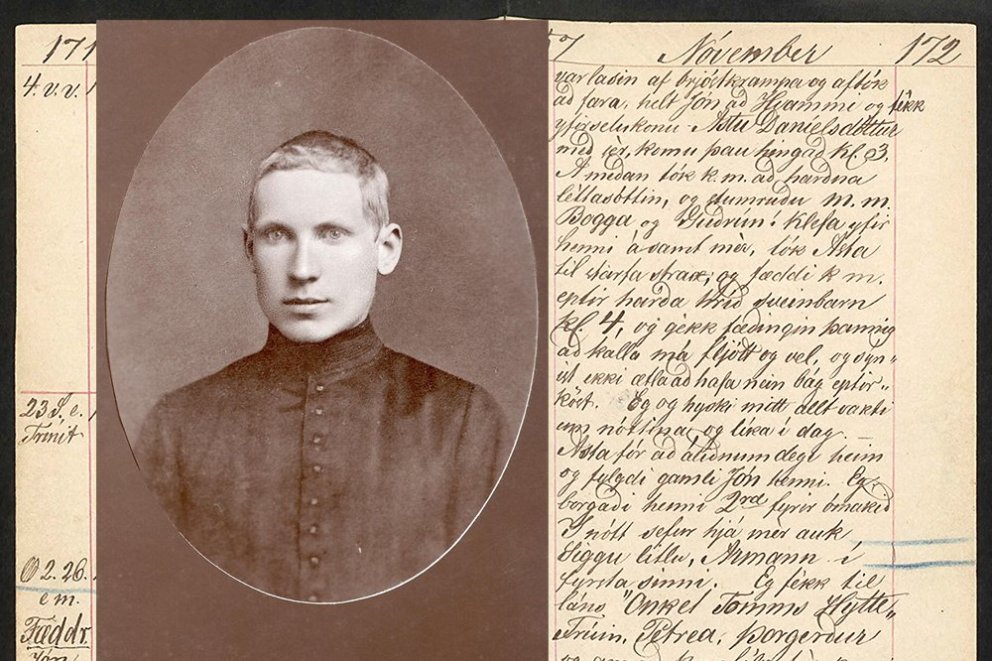 171
4. v. v.
23 S. e.
Trinit
2.26.
e m.
Fæddr
Jón
57 November 172
var lasin af brjóstkrampa og aftók
að fara, helt Jón að Hvammi og fékk
yfirsetukonu Ástu Daníelsdóttur
með sér, komu þau hingað kl. 3.
Á meðan tók k. m. að hardna
léttasóttin, og stumruðu m. m.
Bogga og Guðrún! Klefa yfir
henni ásamt mér, tók Ásta
til starfa strax, og fæddi k m.
eptir harða hríð sveinbarn
Kl. 4, og gékk fæðingin þannig
að kalla má fljótt og vel, og syn„
ist ekki ætla að hafa nein bág eptir„
köst. Eg og hyski mitt allt vakti
um nóttina, og líka í dag.
Ásta fór að áliðnum degi heim
og fylgdi gamli Jón henni. Eg
borgaði henni 2rd fyrir ómakið
Í nótt sefur hjá mér auk
Siggu litlu, Ármann í
fyrsta sinni. Eg fékk til
láns "Onkel Tomms Hytte„
Frúin, Petrea, Þorgerður